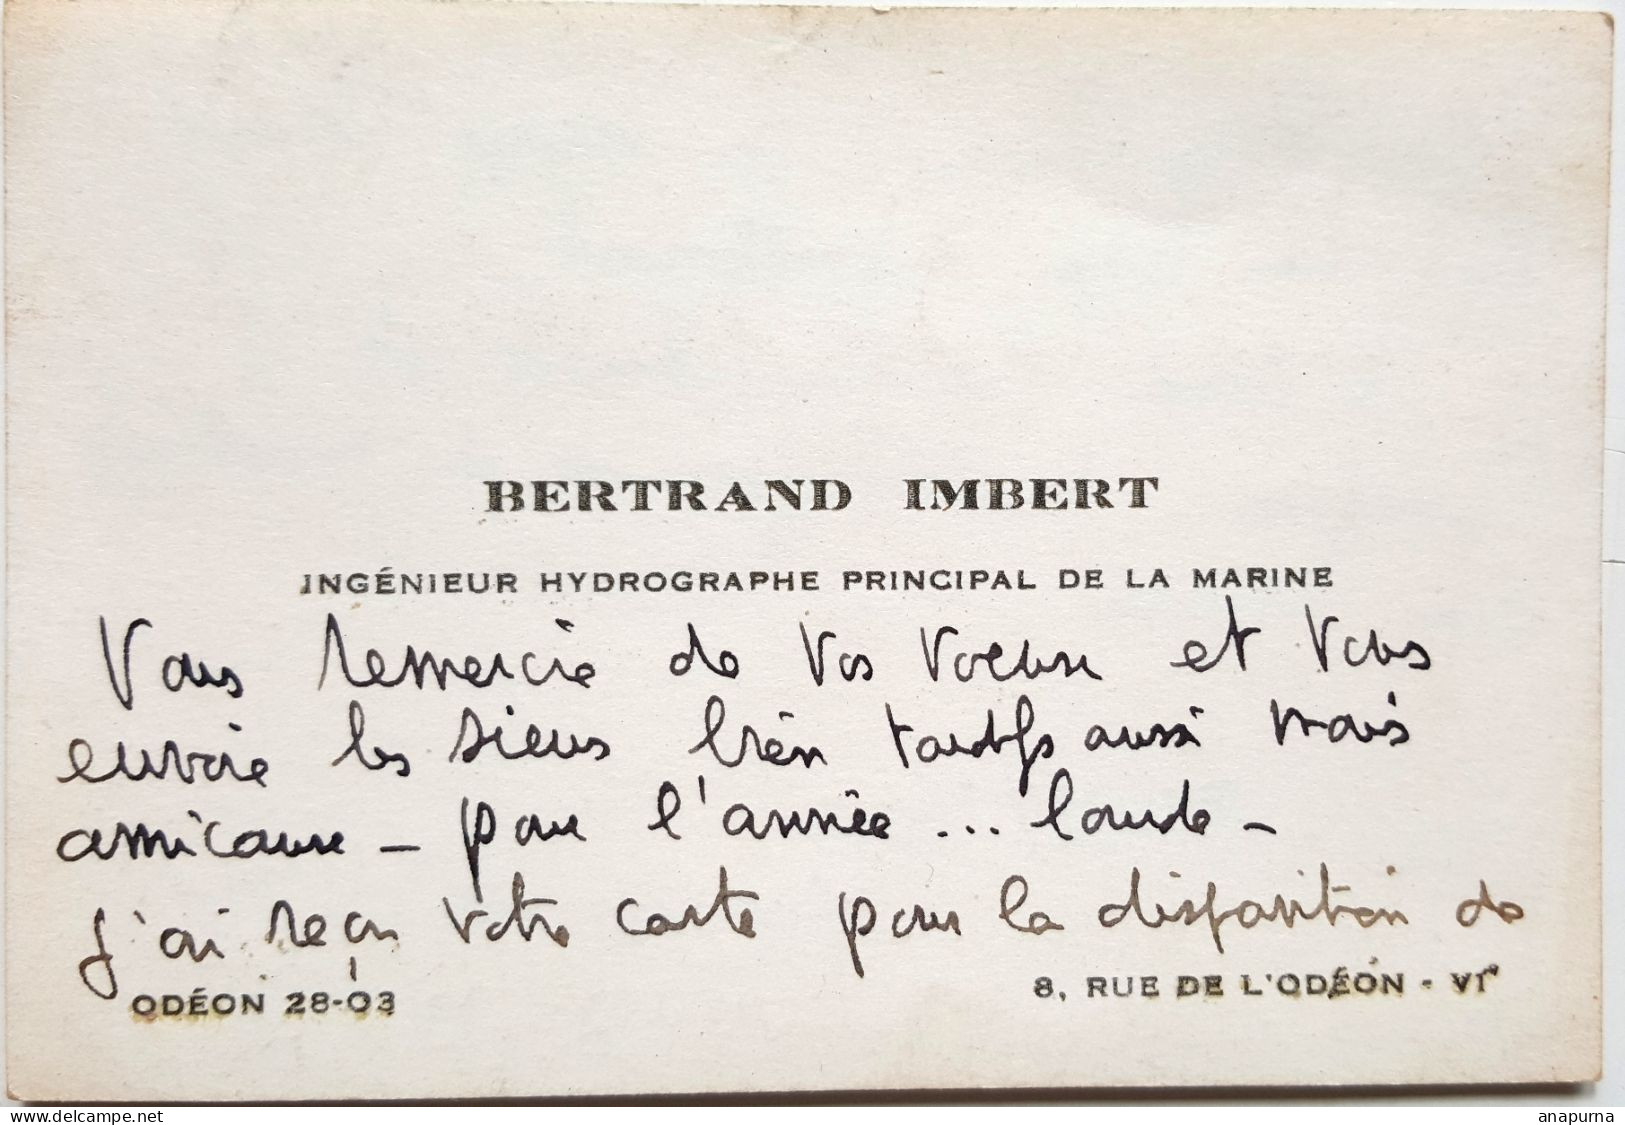 BERTRAND IMBERT
INGÉNIEUR HYDROGRAPHE PRINCIPAL DE LA MARINE
Vous remercie de vos voeux et vous
envoie les siens bien tardifs aussi mais
amicaux - pour l'année ...
J'ai reçu votre carte pour la disparition de
ODÉON 28-03
8, RUE DE L'ODÉON - VIe
delcampe.net
anapurna